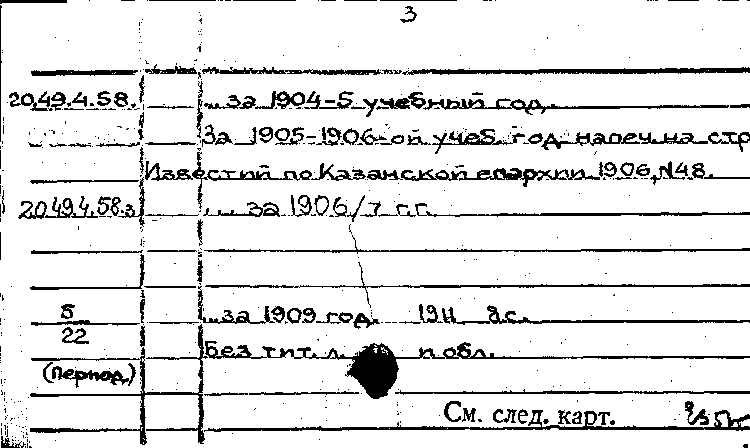 3
2049.4.58. ... за 1904-5 учебный год.
За 1905-1906-ой учеб. год напеч. на стр
Известий по Казанской епархии 1906, N48.
2049.4.58.з ... за 1906/7 г.г.
5/22 ... за 1909 год. 1911 8 с.
Без тит. л. и обл.
(период.)
См. след. карт.